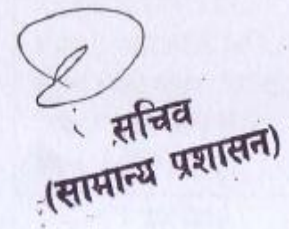 सचिव
(सामान्य प्रशासन)